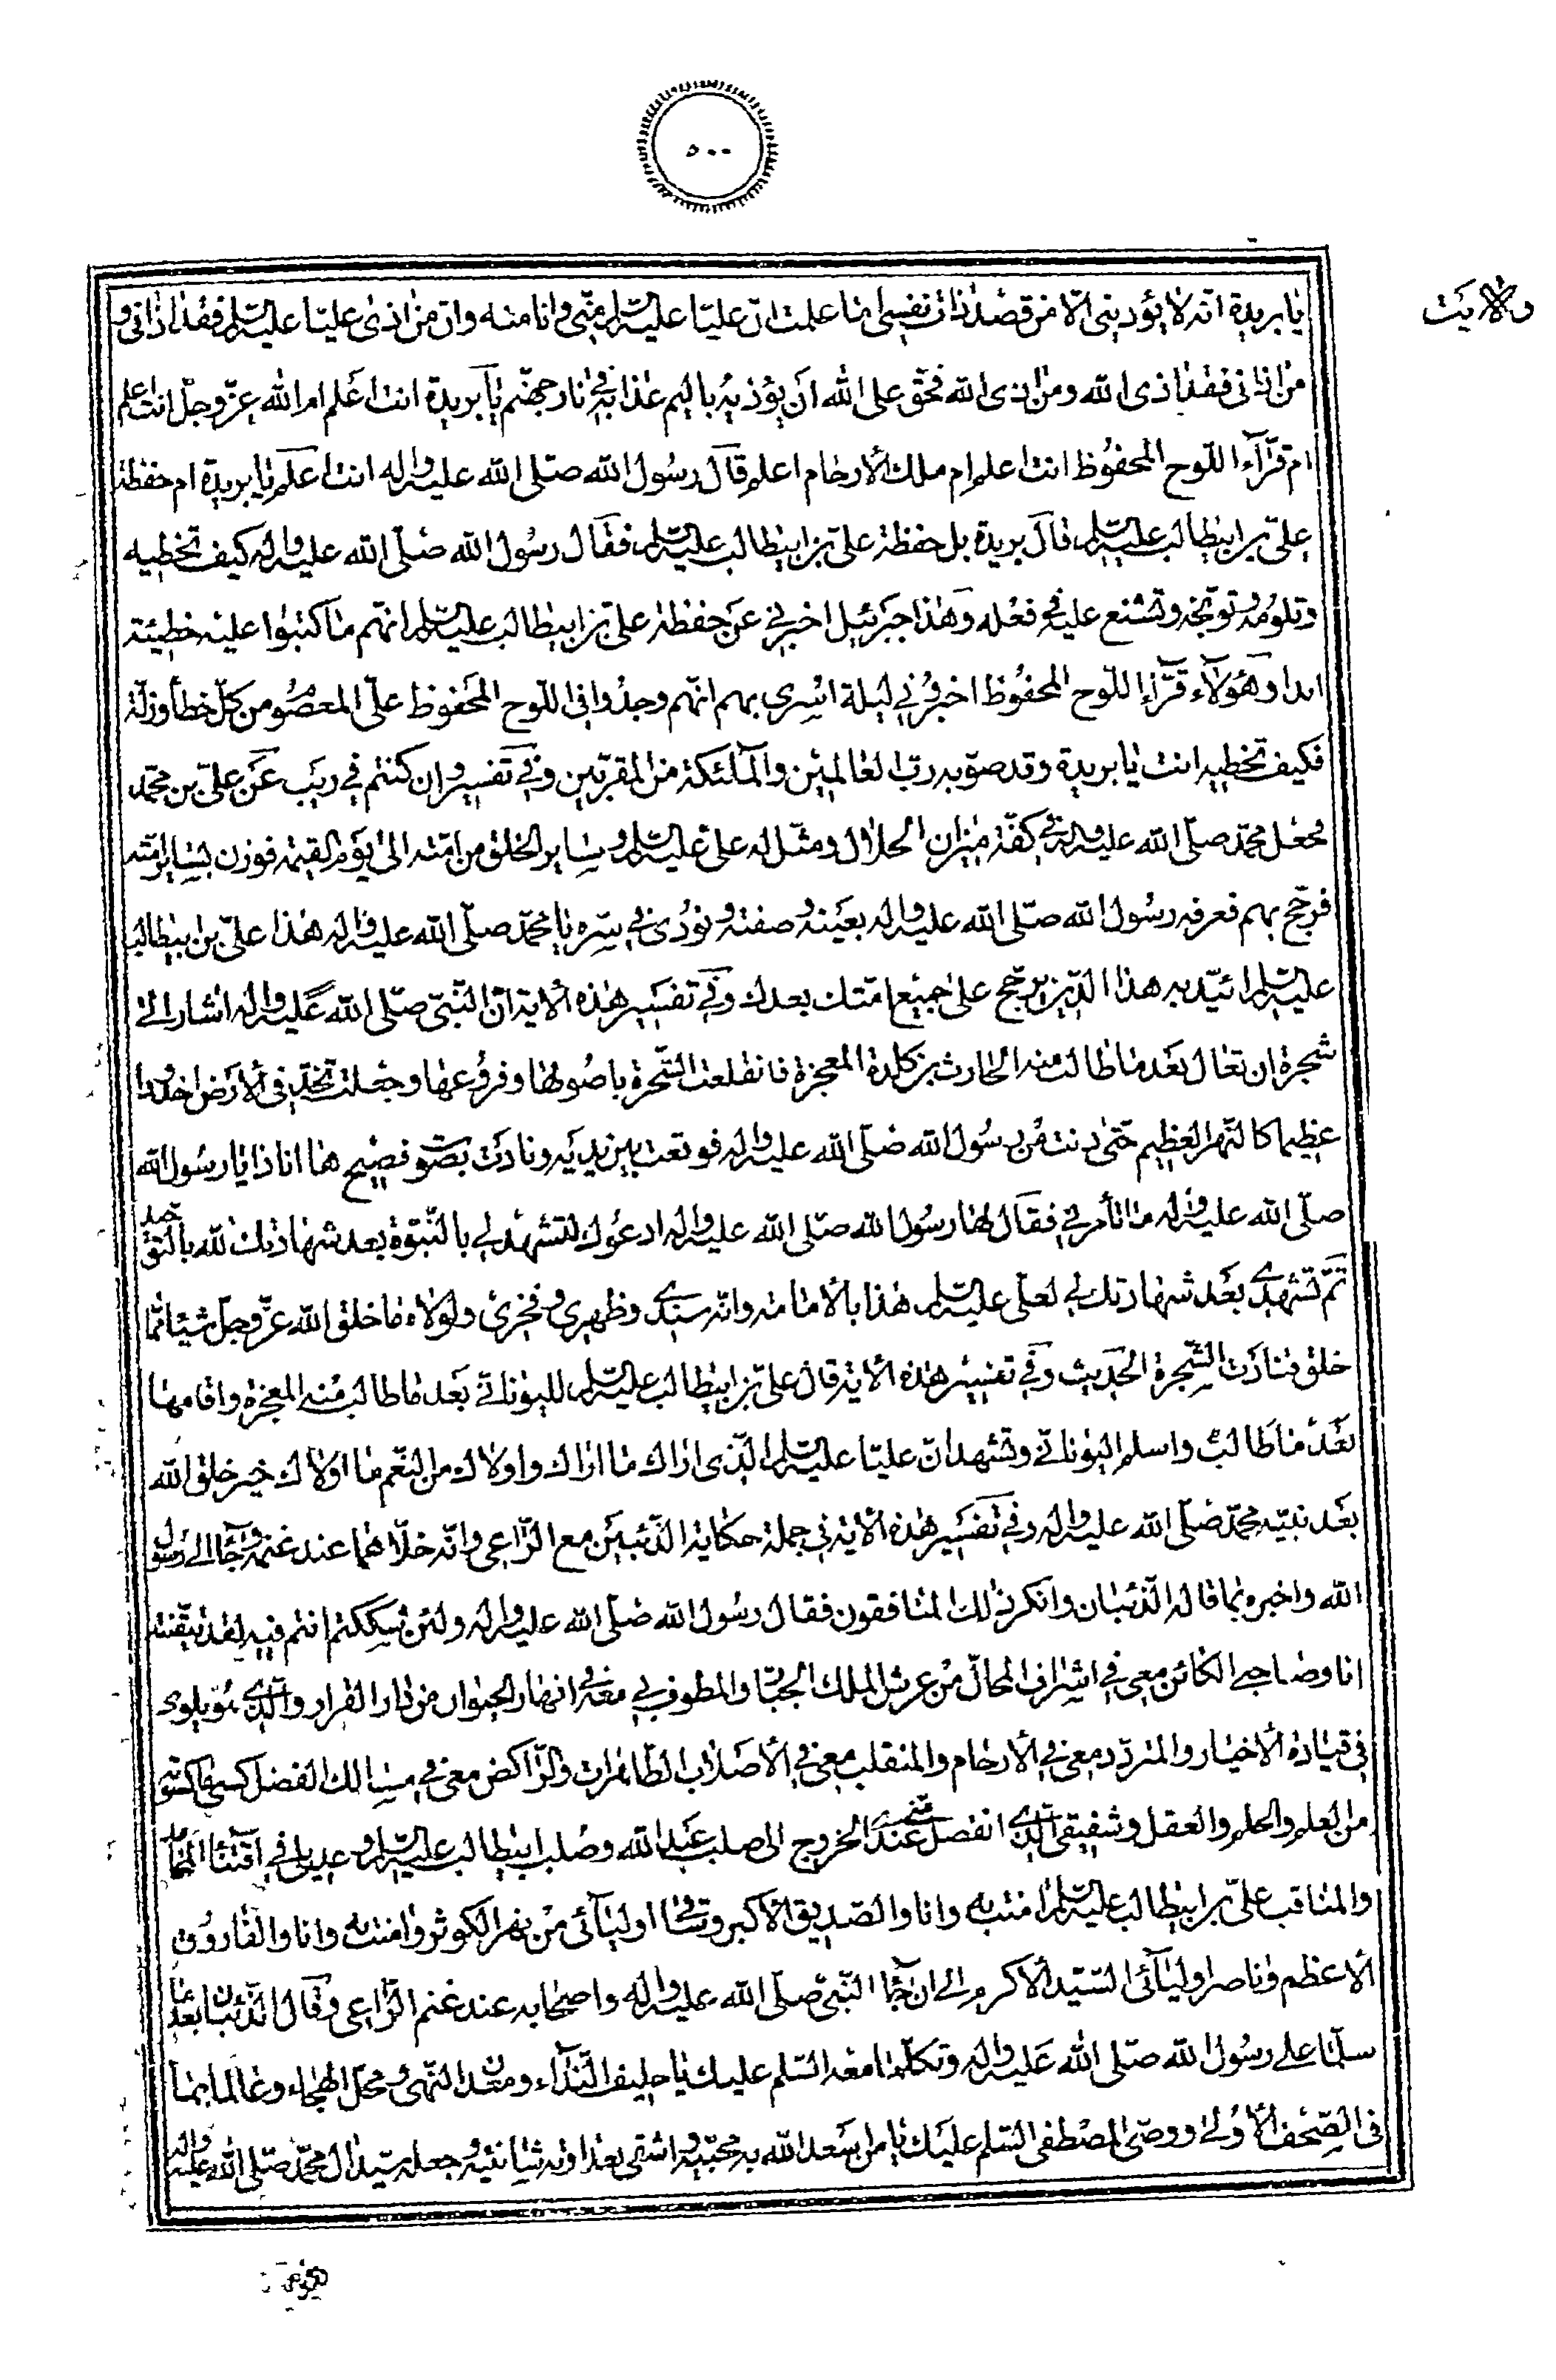 ٥٠٠
ولايت
يا بريدة انه لا يؤذيني الا من قصد ذات نفسي اما علمت ان عليا عليه السلم مني وانا منه وان من اذى عليا عليه السلم فقد اذاني و
من اذاني فقد اذى الله ومن اذى الله فحق على الله ان يؤذيه باليم عذابه في نار جهنم يا بريدة انت اعلم ام الله عز وجل انت اعلم
ام قرآء اللوح المحفوظ انت اعلم ام ملك الارحام اعلم قال رسول الله صلى الله عليه واله انت اعلم يا بريدة ام حفظة
علي بن ابيطالب عليه السلم قال بريدة بل حفظة علي بن ابيطالب عليه السلم فقال رسول الله صلى الله عليه واله كيف تخطيه
وتلومه وتوبخه وتشنع عليه في فعله وهذا جبرئيل اخبرني عن حفظة علي بن ابيطالب عليه السلم انهم ما كتبوا عليه خطيئة
ابدا وهؤلآء قرآء اللوح المحفوظ اخبروني ليلة اسري بهم انهم وجدوا في اللوح المحفوظ على المعصوم من كل خطأ وزلة
فكيف تخطيه انت يا بريدة وقد صوبه رب العالمين والملئكة من المقربين وفي تفسير وان كنتم في ريب عن علي بن محمد
فجعل محمد صلى الله عليه واله في كفة ميزان الحلال ومثل له علي عليه السلم وساير الخلق من امته الى يوم القيمة فوزن بساير امته
فرجح بهم فعرفه رسول الله صلى الله عليه واله بعينه وصفته ونودى في سره يا محمد صلى الله عليه واله هذا علي بن ابيطالب
عليه السلم ائيد به هذا الدين يرجح على جميع امتك بعدك وفي تفسير هذه الاية ان النبي صلى الله عليه واله اشار الى
شجرة ان تعال بعد ما طالب منه الحارث بن كلدة المعجزة فانقلعت الشجرة باصولها وفروعها وجعلت تخد في الارض اخدودا
عظيما كالنهر العظيم حتى دنت من رسول الله صلى الله عليه واله فوقعت بين يديه ونادت بصوت فصيح ها انا ذا يا رسول الله
صلى الله عليه واله ما تأمرني فقال لها رسول الله صلى الله عليه واله ادعوك لتشهد لي بالنبوة بعد شهادتك لله بالتوحيد
ثم تشهدي بعد شهادتك لي لعلي عليه السلم هذا بالامامة وانه سندي وظهري وفخري ولولاه ما خلق الله عز وجل شيئا مما
خلق فنادت الشجرة الحديث وفي تفسير هذه الاية قال علي بن ابيطالب عليه السلم لليوناني بعد ما طالب منه المعجزة واقامها
بعد ما طالب واسلم اليوناني وتشهد ان عليا عليه السلم الذي اراك ما اراك واولاك من النعم ما اولاك خير خلق الله
بعد نبيه محمد صلى الله عليه واله وفي تفسير هذه الاية في جملة حكاية الذئبين مع الراعي وانه خلاهما عند غنمه وجآء الى رسول
الله واخبره بما قاله الذئبان وانكر ذلك المنافقون فقال رسول الله صلى الله عليه واله ولئن شككتم انتم فيه لقد تيقنته
انا وصاحبي الكائن معي في اشراف المحال من عرش الملك الجبار والمطوف بي معه في انهار الحيوان من دار القرار والذي هو يلوى
في قيادة الاخيار والمتردد معي في الارحام والمنقلب معي في الاصلاب الطاهرات والراكض معي في مسالك الفضل كسي ما كسوته
من العلم والحلم والعقل وشفيقي الذي انفصل مني عند الخروج الى صلب عبد الله وصلب ابيطالب عليه السلم وعديلي في اقتناء المحامد
والمناقب علي بن ابيطالب عليه السلم امنت به وانا والصديق الاكبر وساقي اوليآئي من نهر الكوثر وامنت به وانا والفاروق
الاعظم وناصر اوليآئي السيد الاكرم الى ان جآء النبي صلى الله عليه واله واصحابه عند غنم الراعي وقال الذئبان بعد ما
سلما على رسول الله صلى الله عليه واله وتكلما معه السلم عليك يا حليف الندآء ومعدن النهى ومحل الحجاء وعالما بما
في الصحف الاولى ووصي المصطفى السلم عليك يا من سعد الله به محبيه واشقى بعداوته شانئيه وجعله سيد ال محمد صلى الله عليه واله